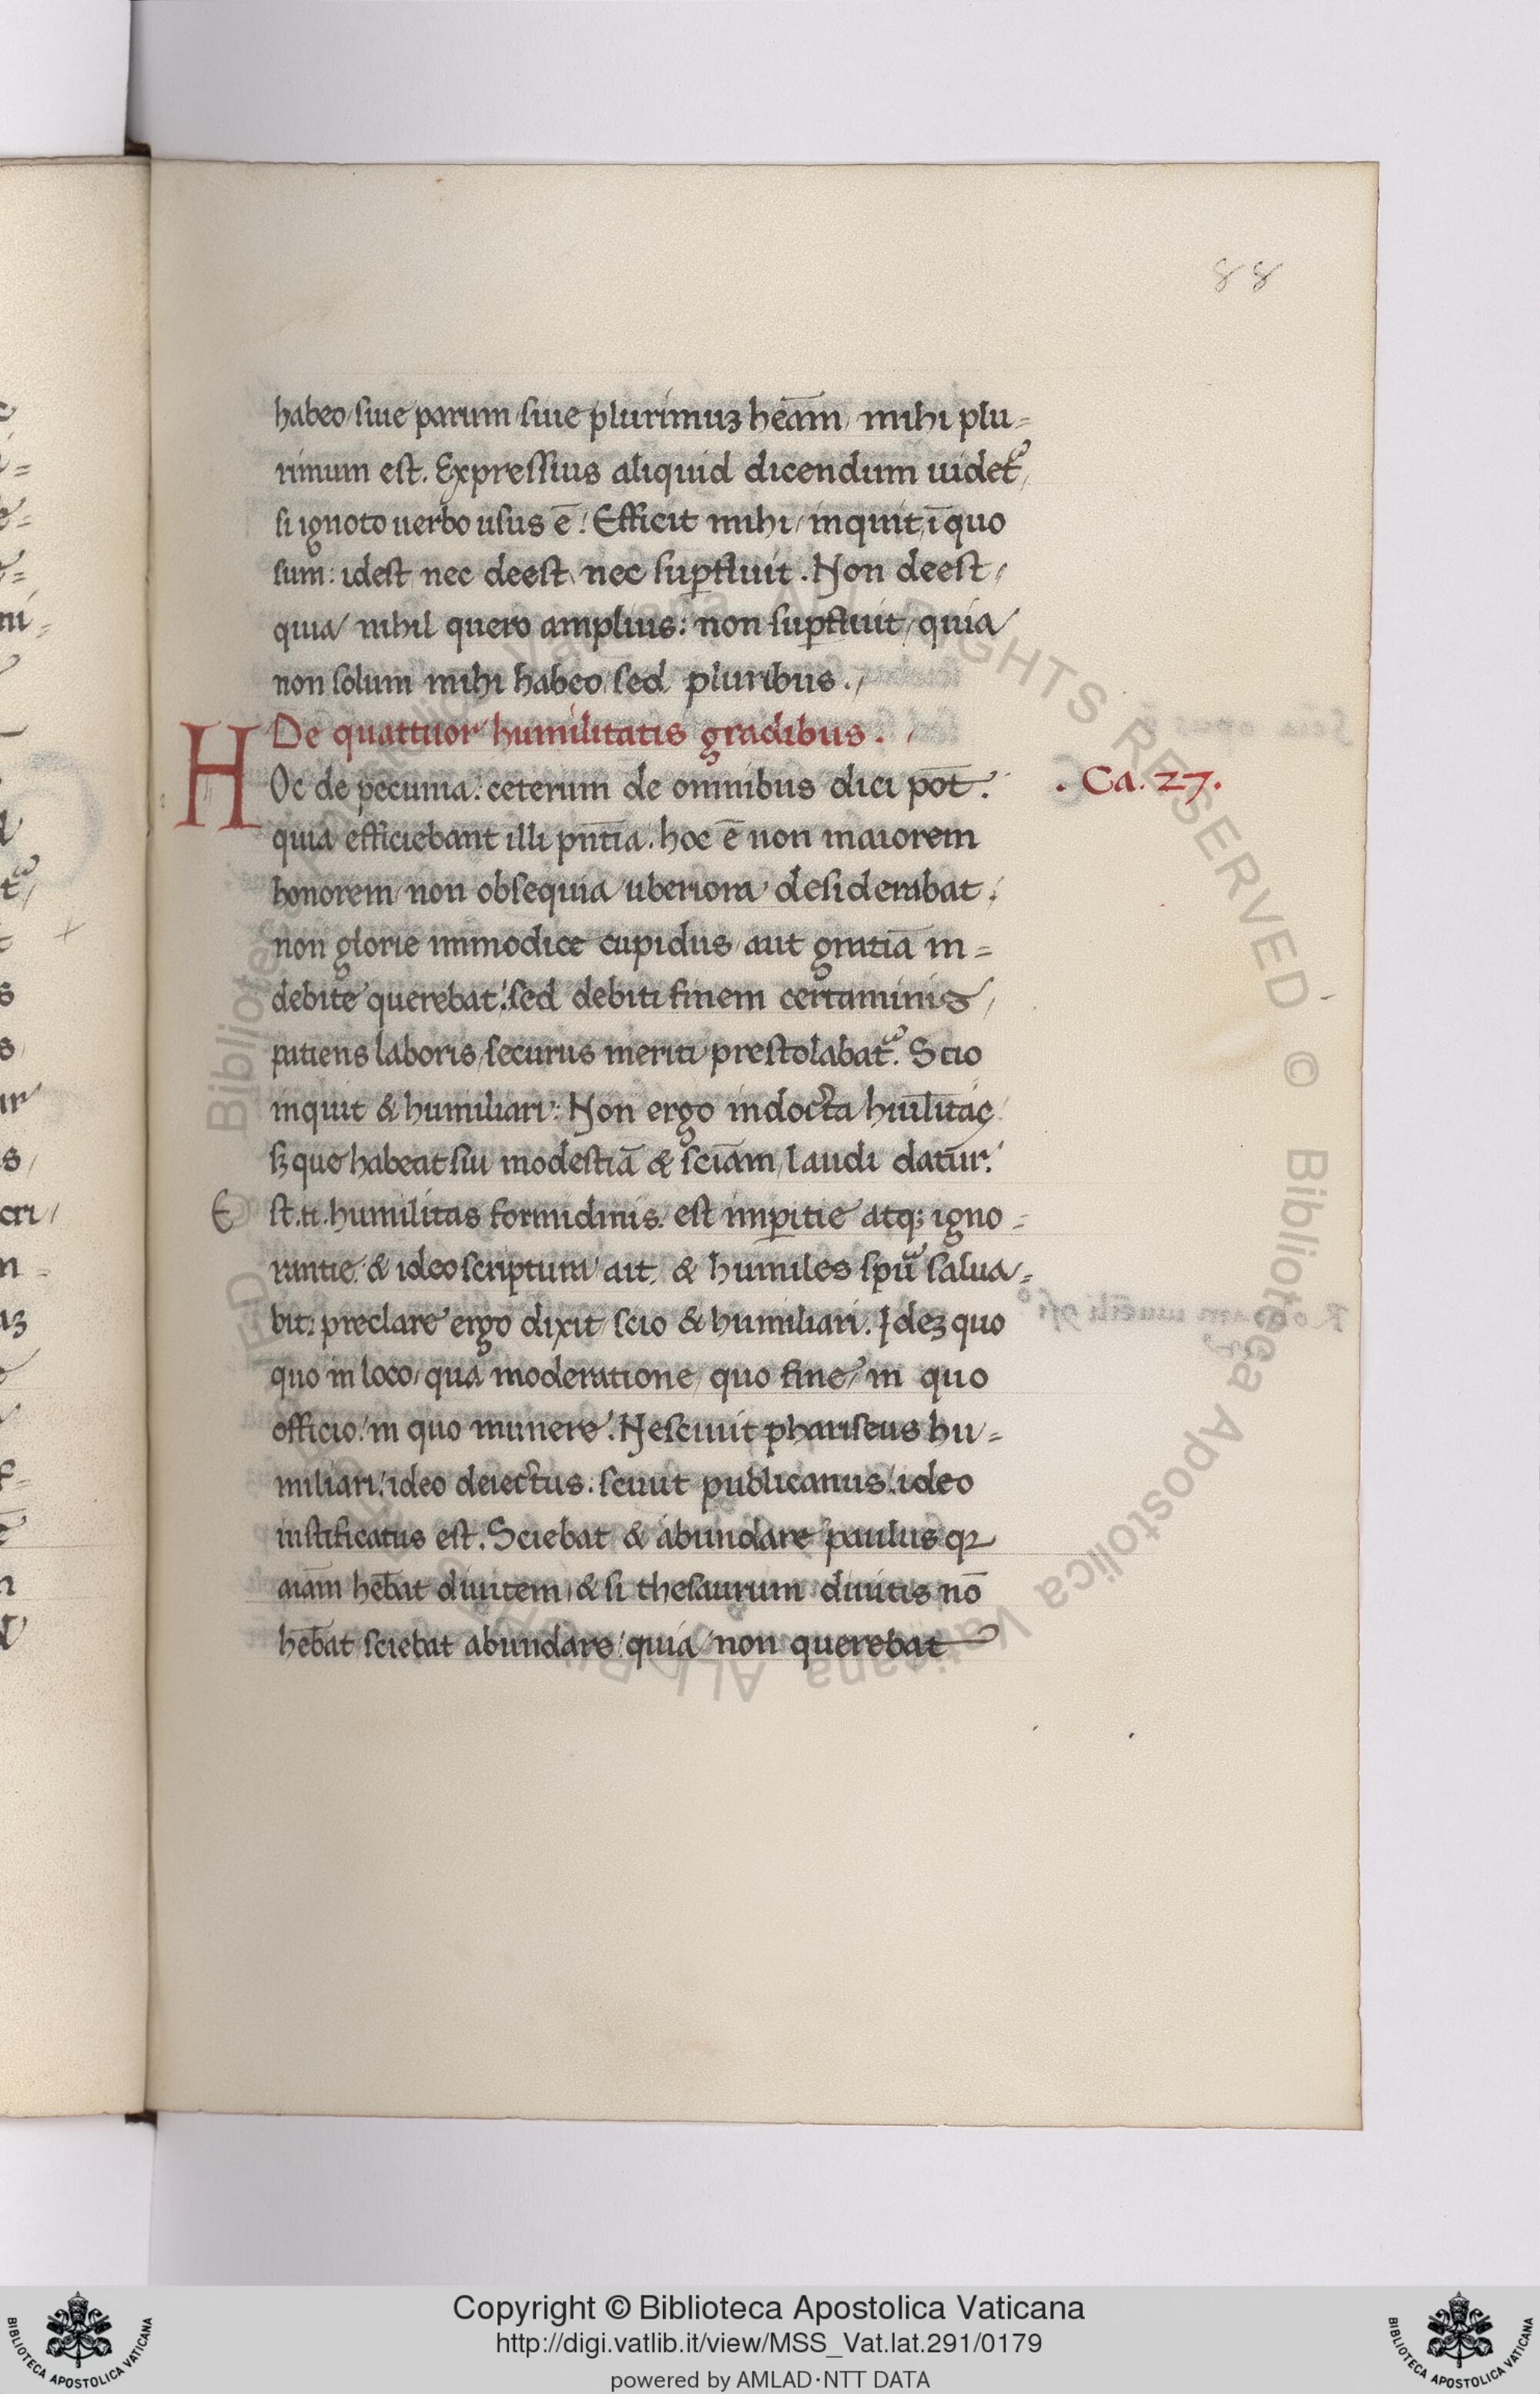 88
habeo/ siue parum/ siue plurimuʒ heām/ mihi plu=
rimum est. Expressius aliquid dicendum uidet᷑/
si ignoto uerbo usus ē! Efficit mihi/ inquit, ī quo
sum: idest nec deest, nec suꝑfluit. Non deest/
quia/ nihil quero amplius: non suꝑfluit/ quia/
non solum mihi habeo, sed pluribus./
De quattuor humilitatis gradibus.
HOc de pecunia: ceterum de omnibus dici pōt:
. Ca. 27.
quia efficiebant illi pn̄tia. hoc ē non maiorem
honorem/ non obsequia/ uberiora desiderabat:
non glorie immodice cupidus/ aut gratiā in=
debite querebat: sed debiti finem certaminis/
patiens laboris/ securus meriti prestolabat᷑. Scio
inquit & humiliari: Non ergo indocta hūilitaç
sʒ que habeat sui modestiā & sciām, laudi datur.
Est.n.humilitas formidinis. est imꝑitie atqʒ igno=
rantie. & ideo scriptura ait. & humiles spū salua=
bit: preclare ergo dixit/ scio & humiliari. Ideʒ quo
quo in loco/ qua moderatione/ quo fine/ in quo
officio/ in quo munere. Nesciuit phariseus hu=
miliari/ ideo deiectus. sciuit publicanus/ ideo
iustificatus est. Sciebat & abundare paulus qꝛ
aiām hēbat diuitem/ & si thesaurum diuitis nō
hēbat sciebat abundare/ quia/ non querebat
Copyright © Biblioteca Apostolica Vaticana
http://digi.vatlib.it/view/MSS_Vat.lat.291/0179
powered by AMLAD·NTT DATA
BIBLIOTECA APOSTOLICA VATICANA
BIBLIOTECA APOSTOLICA VATICANA